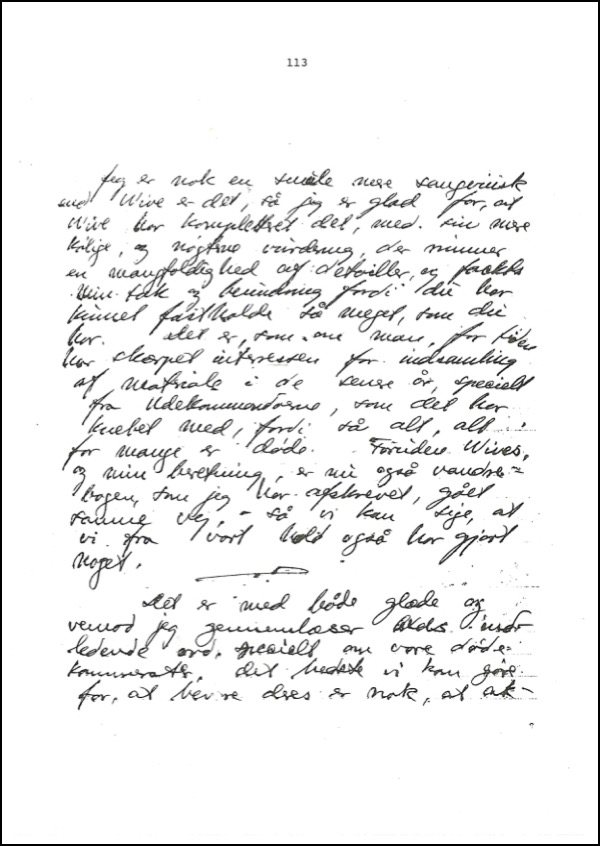 113
Jeg er nok en smule mere sangvinisk
end Wive er det, så jeg er glad for, at
Wive har komplettert det, med sin mere
kølige, og nøgterne vurdering, der rummer
en mangfoldighed af detailler, og
min tak og beundring fordi du har
kunnet fastholde så meget, som du
har. Det er, som om man, for tiden
har skærpet interessen for indsamling
af matriale i de senere år, specielt
fra Udekommandoerne, som det har
knebet med, fordi så alt, alt
for mange er døde. Foruden Wives,
og min beretning, er nu også vandre=
bogen, som jeg har afskrevet, gået
samme vej, - så vi kan sige, at
vi fra vort hold også har gjort
noget.
Det er med både glæde og
vemod jeg gennemlæser ind-
ledende ord, specielt om vore døde
kammerater, det bedste vi kan gøre
for, at deres er nok, at